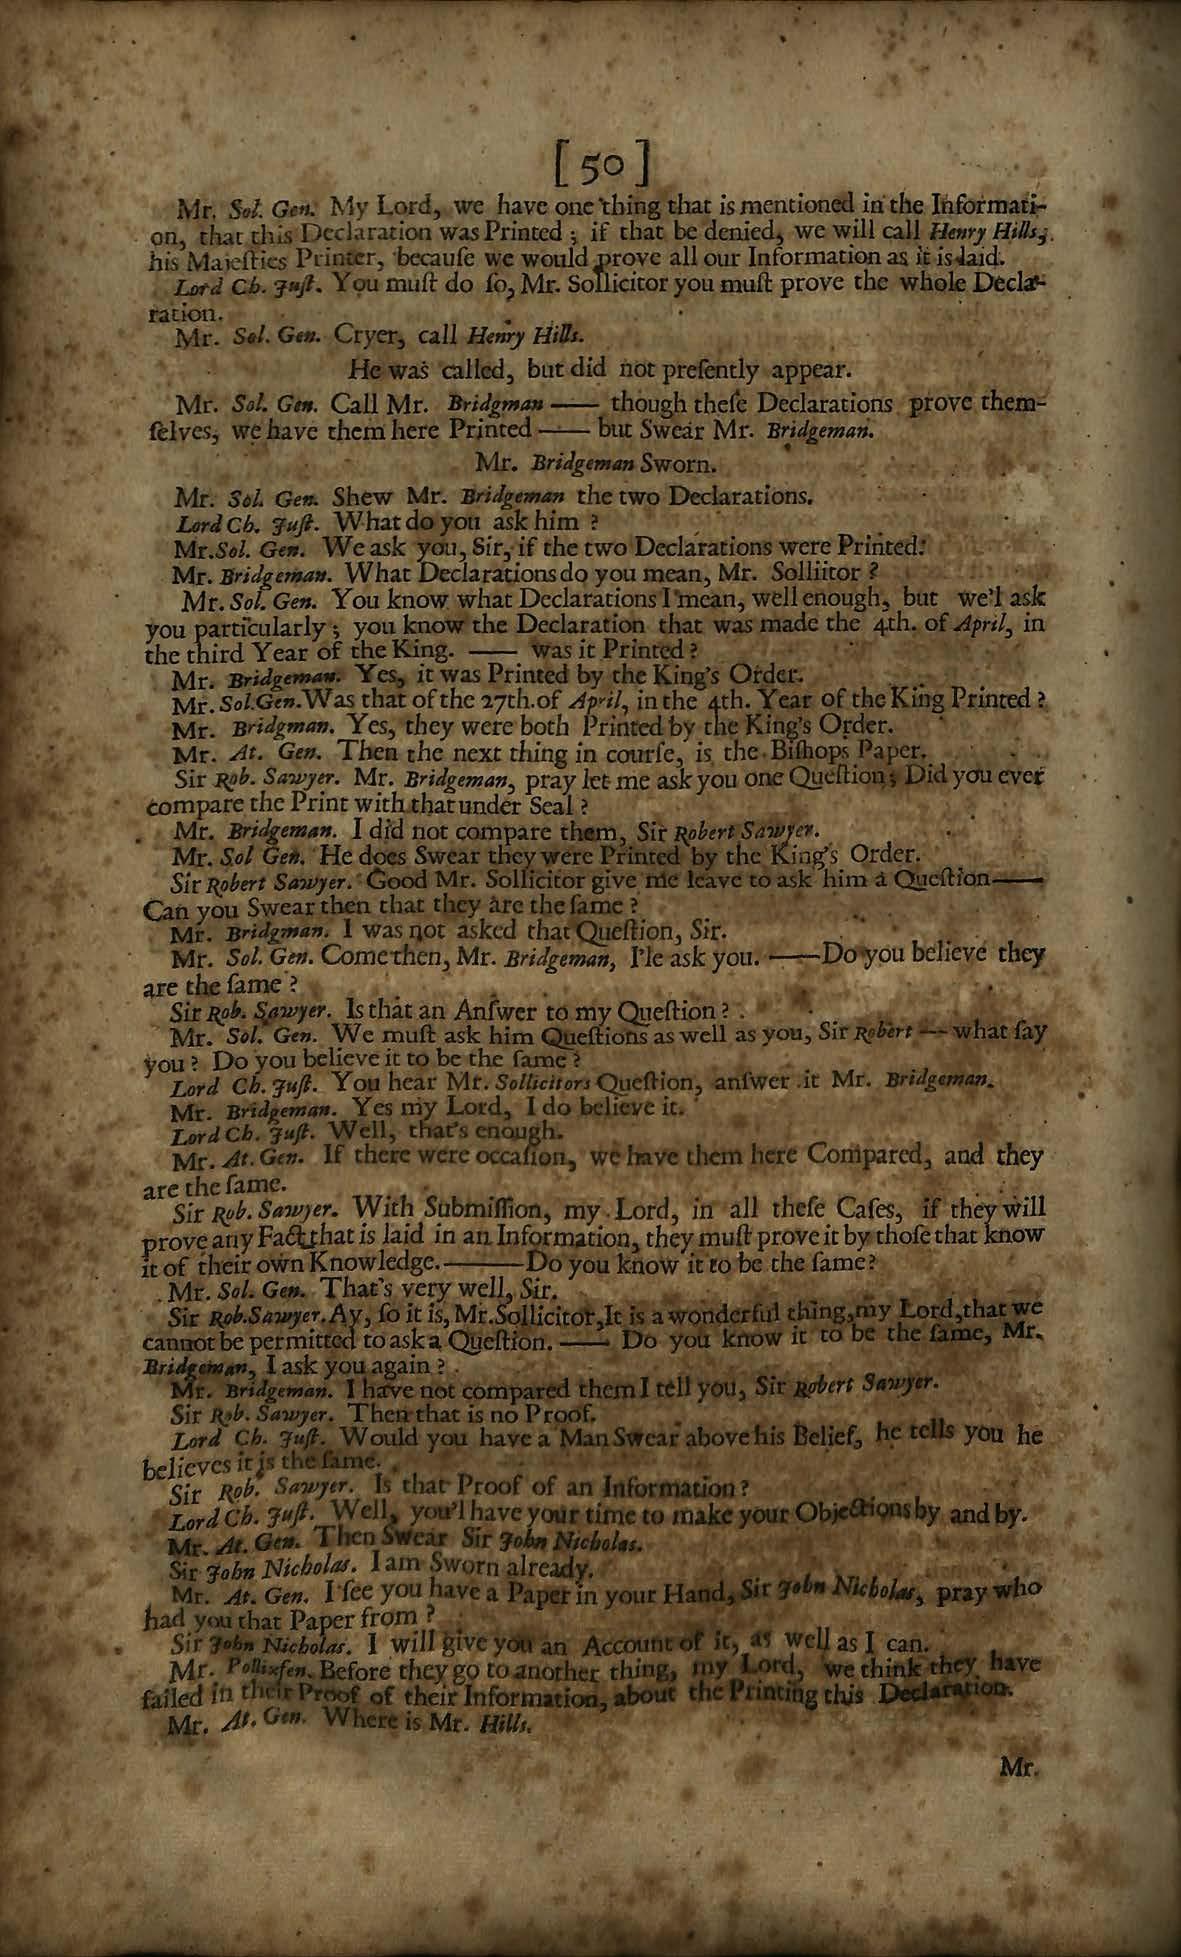 [ 50 ]
Mr. Sol. Gen. My Lord, we have one thing that is mentioned in the Informati-
on, that this Declaration was Printed ; if that be denied, we will call Henry Hills,
his Majeſties Printer, becauſe we would prove all our Information as it is laid.
Lord Ch. Juſt. You muſt do ſo, Mr. Sollicitor you muſt prove the whole Decla-
ration.
Mr. Sol. Gen. Cryer, call Henry Hills.
He was called, but did not preſently appear.
Mr. Sol. Gen. Call Mr. Bridgman —— though theſe Declarations prove them-
ſelves, we have them here Printed —— but Swear Mr. Bridgeman.
Mr. Bridgeman Sworn.
Mr. Sol. Gen. Shew Mr. Bridgeman the two Declarations.
Lord Ch. Juſt. What do you ask him ?
Mr. Sol. Gen. We ask you, Sir, if the two Declarations were Printed.
Mr. Bridgeman. What Declarations do you mean, Mr. Solliitor ?
Mr. Sol. Gen. You know what Declarations I mean, well enough, but we'l ask
you particularly ; you know the Declaration that was made the 4th. of April, in
the third Year of the King. —— was it Printed ?
Mr. Bridgeman. Yes, it was Printed by the King's Order.
Mr. Sol. Gen. Was that of the 27th. of April, in the 4th. Year of the King Printed ?
Mr. Bridgman. Yes, they were both Printed by the King's Order.
Mr. At. Gen. Then the next thing in courſe, is the Biſhops Paper.
Sir Rob. Sawyer. Mr. Bridgeman, pray let me ask you one Queſtion ; Did you ever
compare the Print with that under Seal ?
Mr. Bridgeman. I did not compare them, Sir Robert Sawyer.
Mr. Sol Gen. He does Swear they were Printed by the King's Order.
Sir Robert Sawyer. Good Mr. Sollicitor give me leave to ask him a Queſtion——
Can you Swear then that they are the ſame ?
Mr. Bridgman. I was not asked that Queſtion, Sir.
Mr. Sol. Gen. Come then, Mr. Bridgeman, I'le ask you. ——Do you believe they
are the ſame ?
Sir Rob. Sawyer. Is that an Anſwer to my Queſtion ?
Mr. Sol. Gen. We muſt ask him Queſtions as well as you, Sir Robert — what ſay
you ? Do you believe it to be the ſame ?
Lord Ch. Juſt. You hear Mr. Sollicitors Queſtion, anſwer it Mr. Bridgeman.
Mr. Bridgeman. Yes my Lord, I do believe it.
Lord Ch. Juſt. Well, that's enough.
Mr. At. Gen. If there were occaſion, we have them here Compared, and they
are the ſame.
Sir Rob. Sawyer. With Submiſſion, my Lord, in all theſe Caſes, if they will
prove any Fact that is laid in an Information, they muſt prove it by thoſe that know
it of their own Knowledge.———Do you know it to be the ſame?
Mr. Sol. Gen. That's very well, Sir.
Sir Rob. Sawyer. Ay, ſo it is, Mr. Sollicitor, It is a wonderful thing, my Lord, that we
cannot be permitted to ask a Queſtion. —— Do you know it to be the ſame, Mr.
Bridgeman, I ask you again ?
Mr. Bridgeman. I have not compared them I tell you, Sir Robert Sawyer.
Sir Rob. Sawyer. Then that is no Proof.
Lord Ch. Juſt. Would you have a Man Swear above his Belief, he tells you he
believes it is the ſame.
Sir Rob. Sawyer. Is that Proof of an Information ?
Lord Ch. Juſt. Well, you'l have your time to make your Objections by and by.
Mr. At. Gen. Then Swear Sir John Nicholas.
Sir John Nicholas. I am Sworn already.
Mr. At. Gen. I ſee you have a Paper in your Hand, Sir John Nicholas, pray who
had you that Paper from ?
Sir John Nicholas. I will give you an Account of it, as well as I can.
Mr. Pollixfen. Before they go to another thing, my Lord, we think they have
failed in their Proof of their Information, about the Printing this Declaration.
Mr. At. Gen. Where is Mr. Hills.
Mr.